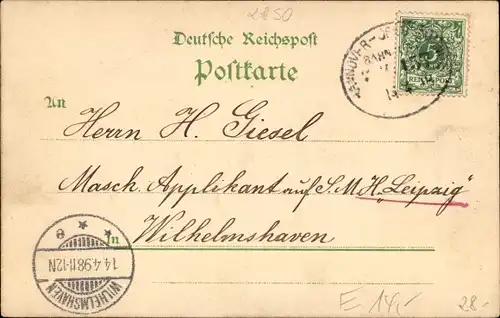 2850
Deutsche Reichspost
Postkarte
HANNOVER
BAHN
5
REICHSPOST
An
Herrn H. Giesel
Masch. Applikant auf S.M.H. „Leipzig“
in
Wilhelmshaven
WILHELMSHAVEN
14.4.98.11-12N
* * e
E 14,-
28.-